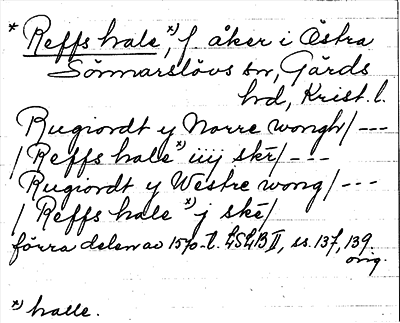 * Reffs hale *), f. åker i Östra
Sönnarslövs sn, Gärds
hd, Krist. l.
Rugiordt y Norre wongh/ ---
/ Reffs hale *) iiij skē/ ---
Rugiordt y Westre wong/ ---
/ Reffs hale *) j skē/
förra delen av 15po-t. LSLB II, ss. 137, 139
orig.
*) halle.